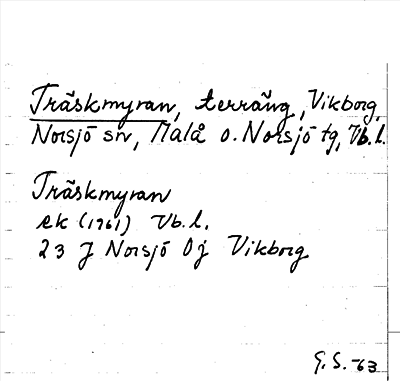 Träskmyran, terräng, Vikborg,
Norsjö sn, Malå o. Norsjö tg, Vb.l.
Träskmyran
ek (1961) Vb.l.
23 J Norsjö 0j Vikborg
G.S. -63